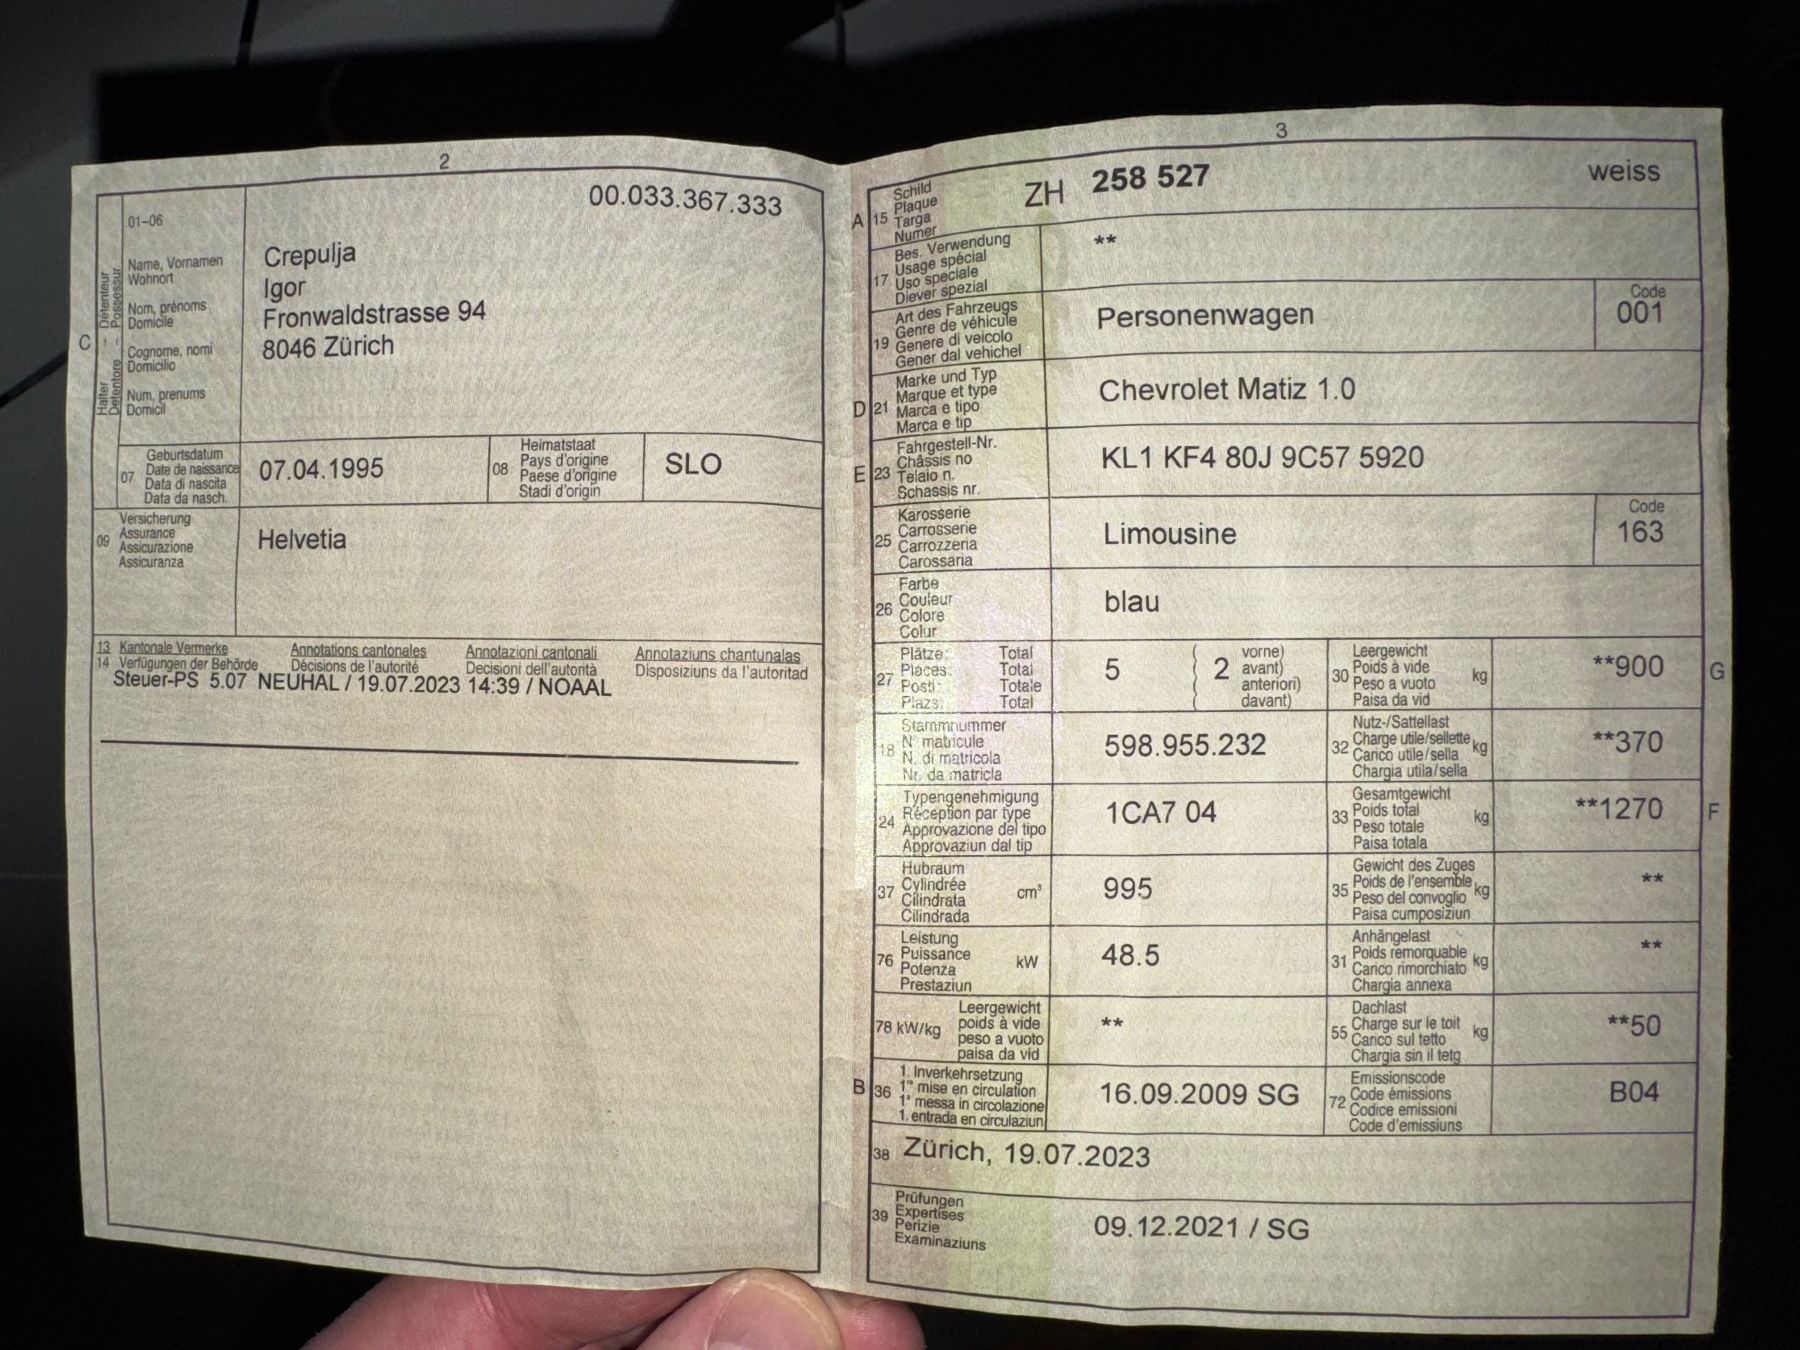 2
00.033.367.333
01–06
Name, Vornamen
Wohnort
Nom, prénoms
Domicile
Cognome, nomi
Domicilio
Num, prenums
Domicil
C
Halter – Détenteur
Detentore – Possessur
Crepulja
Igor
Fronwaldstrasse 94
8046 Zürich
07
Geburtsdatum
Date de naissance
Data di nascita
Data da nasch.
07.04.1995
08
Heimatstaat
Pays d'origine
Paese d'origine
Stadi d'origin
SLO
09
Versicherung
Assurance
Assicurazione
Assicuranza
Helvetia
13 Kantonale Vermerke Annotations cantonales Annotazioni cantonali Annotaziuns chantunalas
14 Verfügungen der Behörde Décisions de l'autorité Decisioni dell'autorità Disposiziuns da l'autoritad
Steuer-PS 5.07 NEUHAL / 19.07.2023 14:39 / NOAAL
3
A 15
Schild
Plaque
Targa
Numer
ZH 258 527 weiss
17
Bes. Verwendung
Usage spécial
Uso speciale
Diever spezial
**
19
Art des Fahrzeugs
Genre de véhicule
Genere di veicolo
Gener dal vehichel
Personenwagen
Code
001
D 21
Marke und Typ
Marque et type
Marca e tipo
Marca e tip
Chevrolet Matiz 1.0
E 23
Fahrgestell-Nr.
Châssis no
Telaio n.
Schassis nr.
KL1 KF4 80J 9C57 5920
25
Karosserie
Carrosserie
Carrozzeria
Carossaria
Limousine
Code
163
26
Farbe
Couleur
Colore
Colur
blau
27
Plätze: Total
Places: Total
Posti: Totale
Plazs: Total
5 ( 2 vorne)
avant)
anteriori)
( davant)
30
Leergewicht
Poids à vide
Peso a vuoto
Paisa da vid
kg
**900
G
18
Stammnummer
N° matricule
N. di matricola
Nr. da matricla
598.955.232
32
Nutz-/Sattellast
Charge utile/sellette
Carico utile/sella
Chargia utila/sella
kg
**370
24
Typengenehmigung
Réception par type
Approvazione del tipo
Approvaziun dal tip
1CA7 04
33
Gesamtgewicht
Poids total
Peso totale
Paisa totala
kg
**1270
F
37
Hubraum
Cylindrée
Cilindrata
Cilindrada
cm³
995
35
Gewicht des Zuges
Poids de l'ensemble
Peso del convoglio
Paisa cumposiziun
kg
**
76
Leistung
Puissance
Potenza
Prestaziun
kW
48.5
31
Anhängelast
Poids remorquable
Carico rimorchiato
Chargia annexa
kg
**
78 kW/kg
Leergewicht
poids à vide
peso a vuoto
paisa da vid
**
55
Dachlast
Charge sur le toit
Carico sul tetto
Chargia sin il tetg
kg
**50
B 36
1. Inverkehrsetzung
1re mise en circulation
1a messa in circolazione
1. entrada en circulaziun
16.09.2009 SG
72
Emissionscode
Code émissions
Codice emissioni
Code d'emissiuns
B04
38 Zürich, 19.07.2023
39
Prüfungen
Expertises
Perizie
Examinaziuns
09.12.2021 / SG